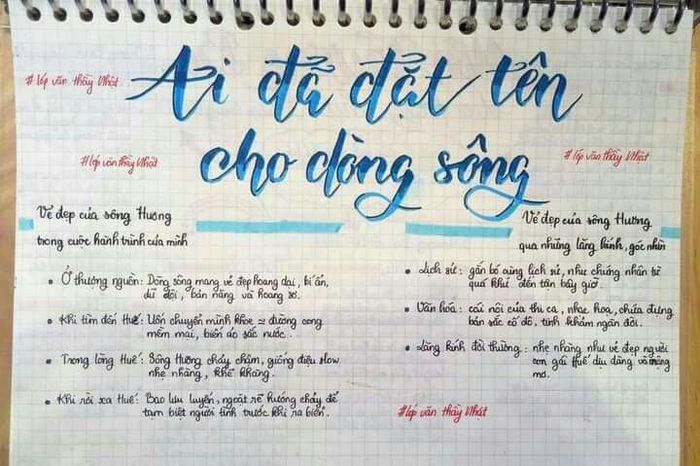 # lớp văn thầy Nhật
Ai đã đặt tên
cho dòng sông
#lớp văn thầy Nhật
# lớp văn thầy Nhật
Vẻ đẹp của sông Hương
trong cuộc hành trình của mình
• Ở thượng nguồn: Dòng sông mang vẻ đẹp hoang dại, bí ẩn,
dữ dội, bản năng và hoang sơ.
• Khi tìm đến Huế: Uốn chuyển mình khoe = đường cong
mềm mại, biến ảo sắc nước.
• Trong lòng Huế: Sông Hương chảy chậm, giống điệu slow
nhẹ nhàng, khẽ khàng.
• Khi rời xa Huế: Bao lưu luyến, ngoặt rẽ hướng chảy để
tạm biệt người tình trước khi ra biển.
Vẻ đẹp của sông Hương
qua những lăng kính, góc nhìn
• Lịch sử: gắn bó cùng lịch sử, như chứng nhân từ
quá khứ đến tận bây giờ.
• Văn hóa: cái nôi của thi ca, nhạc họa, chứa đựng
bản sắc cố đô, tinh khảm ngàn đời.
• Lăng kính đời thường: nhẹ nhàng như vẻ đẹp người
con gái Huế dịu dàng và mộng
mơ.
#lớp văn thầy Nhật